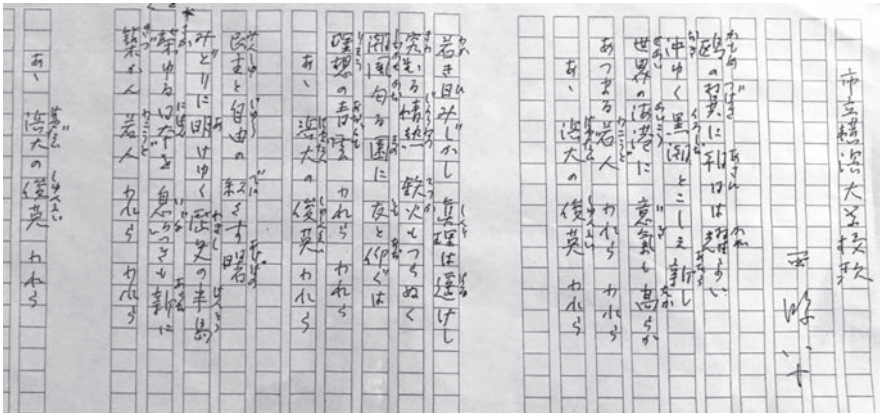 市立横浜大学校歌
西條八十
鴎の翼に朝日は耀よい
沖ゆく黒潮とこしえ新し
世界の海港に意気も高らか
あつまる若人 われら われら
あゝ 浜大の俊英 われら
若き日みじかし 真理は遥けし
究むる情熱 鉄火もつらぬく
匂る園に 友と仰ぐは
理想の青雲 われら われら
あゝ 浜大の俊英 われら
民主と自由の 紅さす曙
みどりに明けゆく 歴史の半島
栄ゆる日本を 息づきも新に
築かん 若人 われら われら
あゝ 浜大の俊英 われら